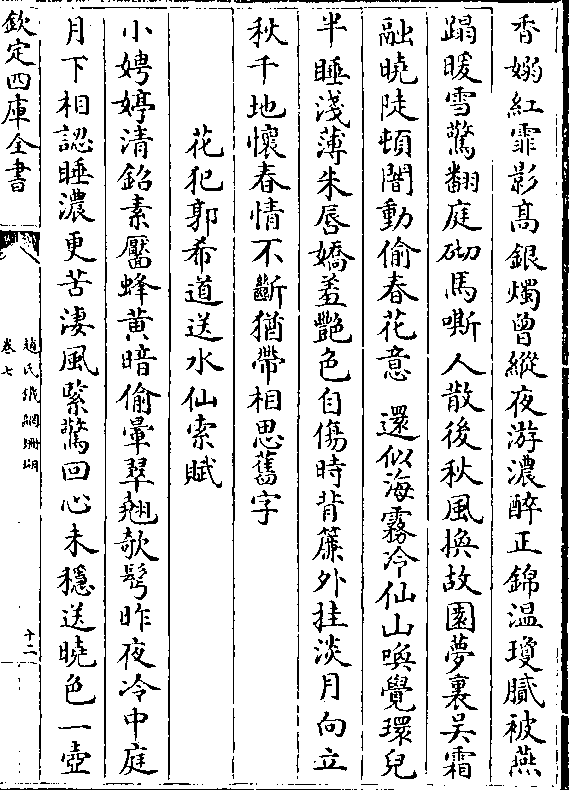 香嫋紅霏影髙銀燭曾縱夜游濃醉正錦温瓊膩被燕
蹋暖雪驚翻庭砌馬嘶人散後秋風換故園夢裏吴霜
融曉陡頓闇動偷春花意　還似海霧冷仙山喚覺環兒
半睡淺薄朱唇嬌羞艷色自傷時背簾外挂淡月向立
秋千地懷春情不斷猶帶相思舊字
花犯郭希道送水仙索賦
小娉婷清鉛素靨蜂黄暗偷暈翠翹欹鬢昨夜冷中庭
月下相認睡濃更苦淒風緊驚回心未穩送曉色一壺
欽定四庫全書
趙氏鐵網珊瑚
卷七
十二